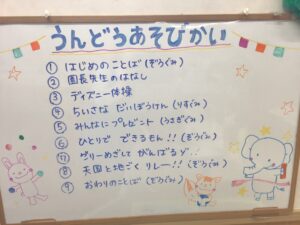 うんどうあそびかい
① はじめのことば (ぞうぐみ)
② 園長先生のはなし
③ ディズニー体操
④ ちいさな だいぼうけん (りすぐみ)
⑤ みんなにプレゼント (うさぎぐみ)
⑥ ひとりで できるもん!! (ぞうぐみ)
⑦ ゲリーめざして がんばるゾ
⑧ 天国と地ごく リレー!! (ぞうぐみ)
⑨ おわりのことば (ぞうぐみ)